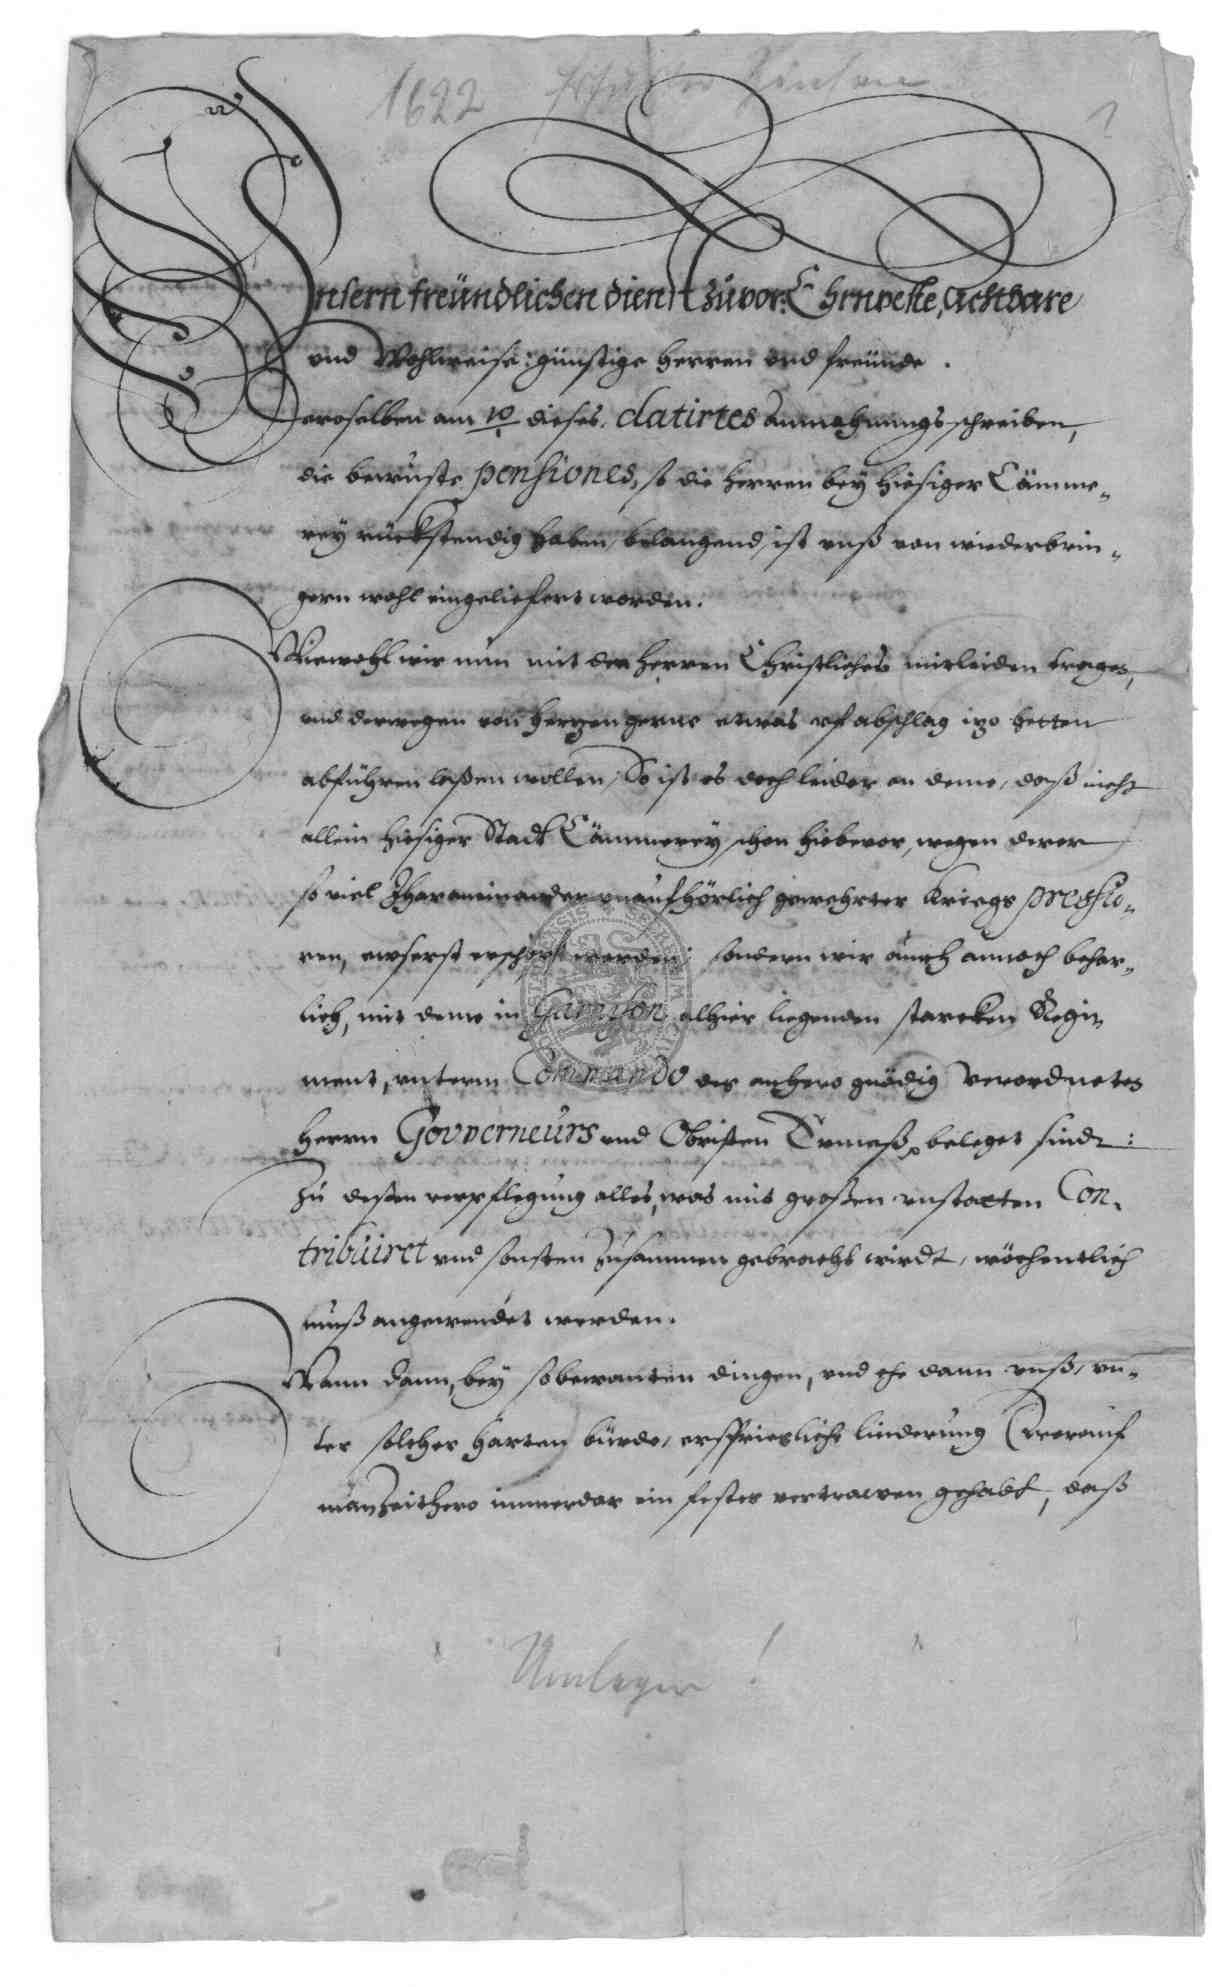 1622
Unsern freündlichen dienst zuvor: Ehrnveste, Achtbare
vnd Wohlweise: günstige Herren vnd freünde.
Deroselben am 10 dieses, datirtes Anmahnungsschreiben,
die bewuste pensiones, so die Herren bey hiesiger Cämme-
rey rückstendig haben, belangend, ist vnß von wiederbrin-
gern wohl eingeliefert worden.
Wiewohl wir nun mit den Herren Christliches mitleiden tragen,
vnd derwegen von Hertzen gerne etwas vf abschlag itzo hetten
abführen laßen wollen, So ist es doch leider an deme, daß nicht
allein hiesiger Stadt Cämmerey schon hiebevor, wegen derer
so viel Jhar aneinander vnaufhörlich gewehrter Kriegs pressu-
ren, eusserst erschöpft worden; sondern wir auch annoch behar-
lich, mit deme in Garnison alhier liegenden starcken Regi-
ment, vnterm Commando des anhero gnädig verordneten
Herrn Gouverneurs vnd Obristen beleget sindt:
Zu deßen verpflegung alles, was mit großen vnstatten Con-
tribüiret vnd sonsten zusammen gebracht wirdt, wöchentlich
muß angewendet werden.
Wann dann, bey so bewanten dingen, vnd ehe dann vnß, vn-
ter solcher harten bürde, ersprießliche linderung (worauf
man Zeithero immerdar ein festes vertrawen gehabt, daß